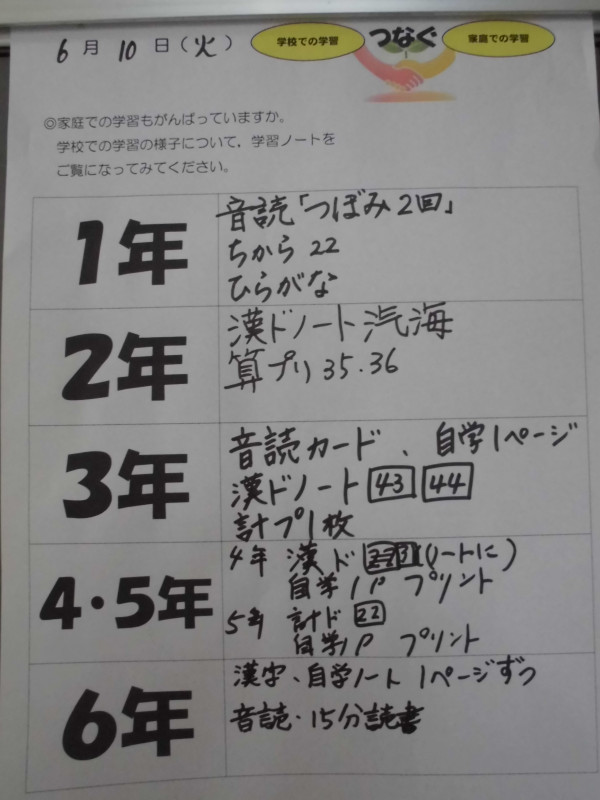 6月10日(火)
学校での学習 つなぐ 家庭での学習
◎家庭での学習もがんばっていますか。
学校での学習の様子について，学習ノートを
ご覧になってみてください。
1年
音読「つぼみ2回」
ちから22
ひらがな
2年
漢ドノート汽海
算プリ35.36
3年
音読カード、自学1ページ
漢ドノート43 44
計プ1枚
4・5年
4年 漢ド (ノートに)
自学1P プリント
5年 計ド22
自学1P プリント
6年
漢字、自学ノート 1ページずつ
音読・15分読書